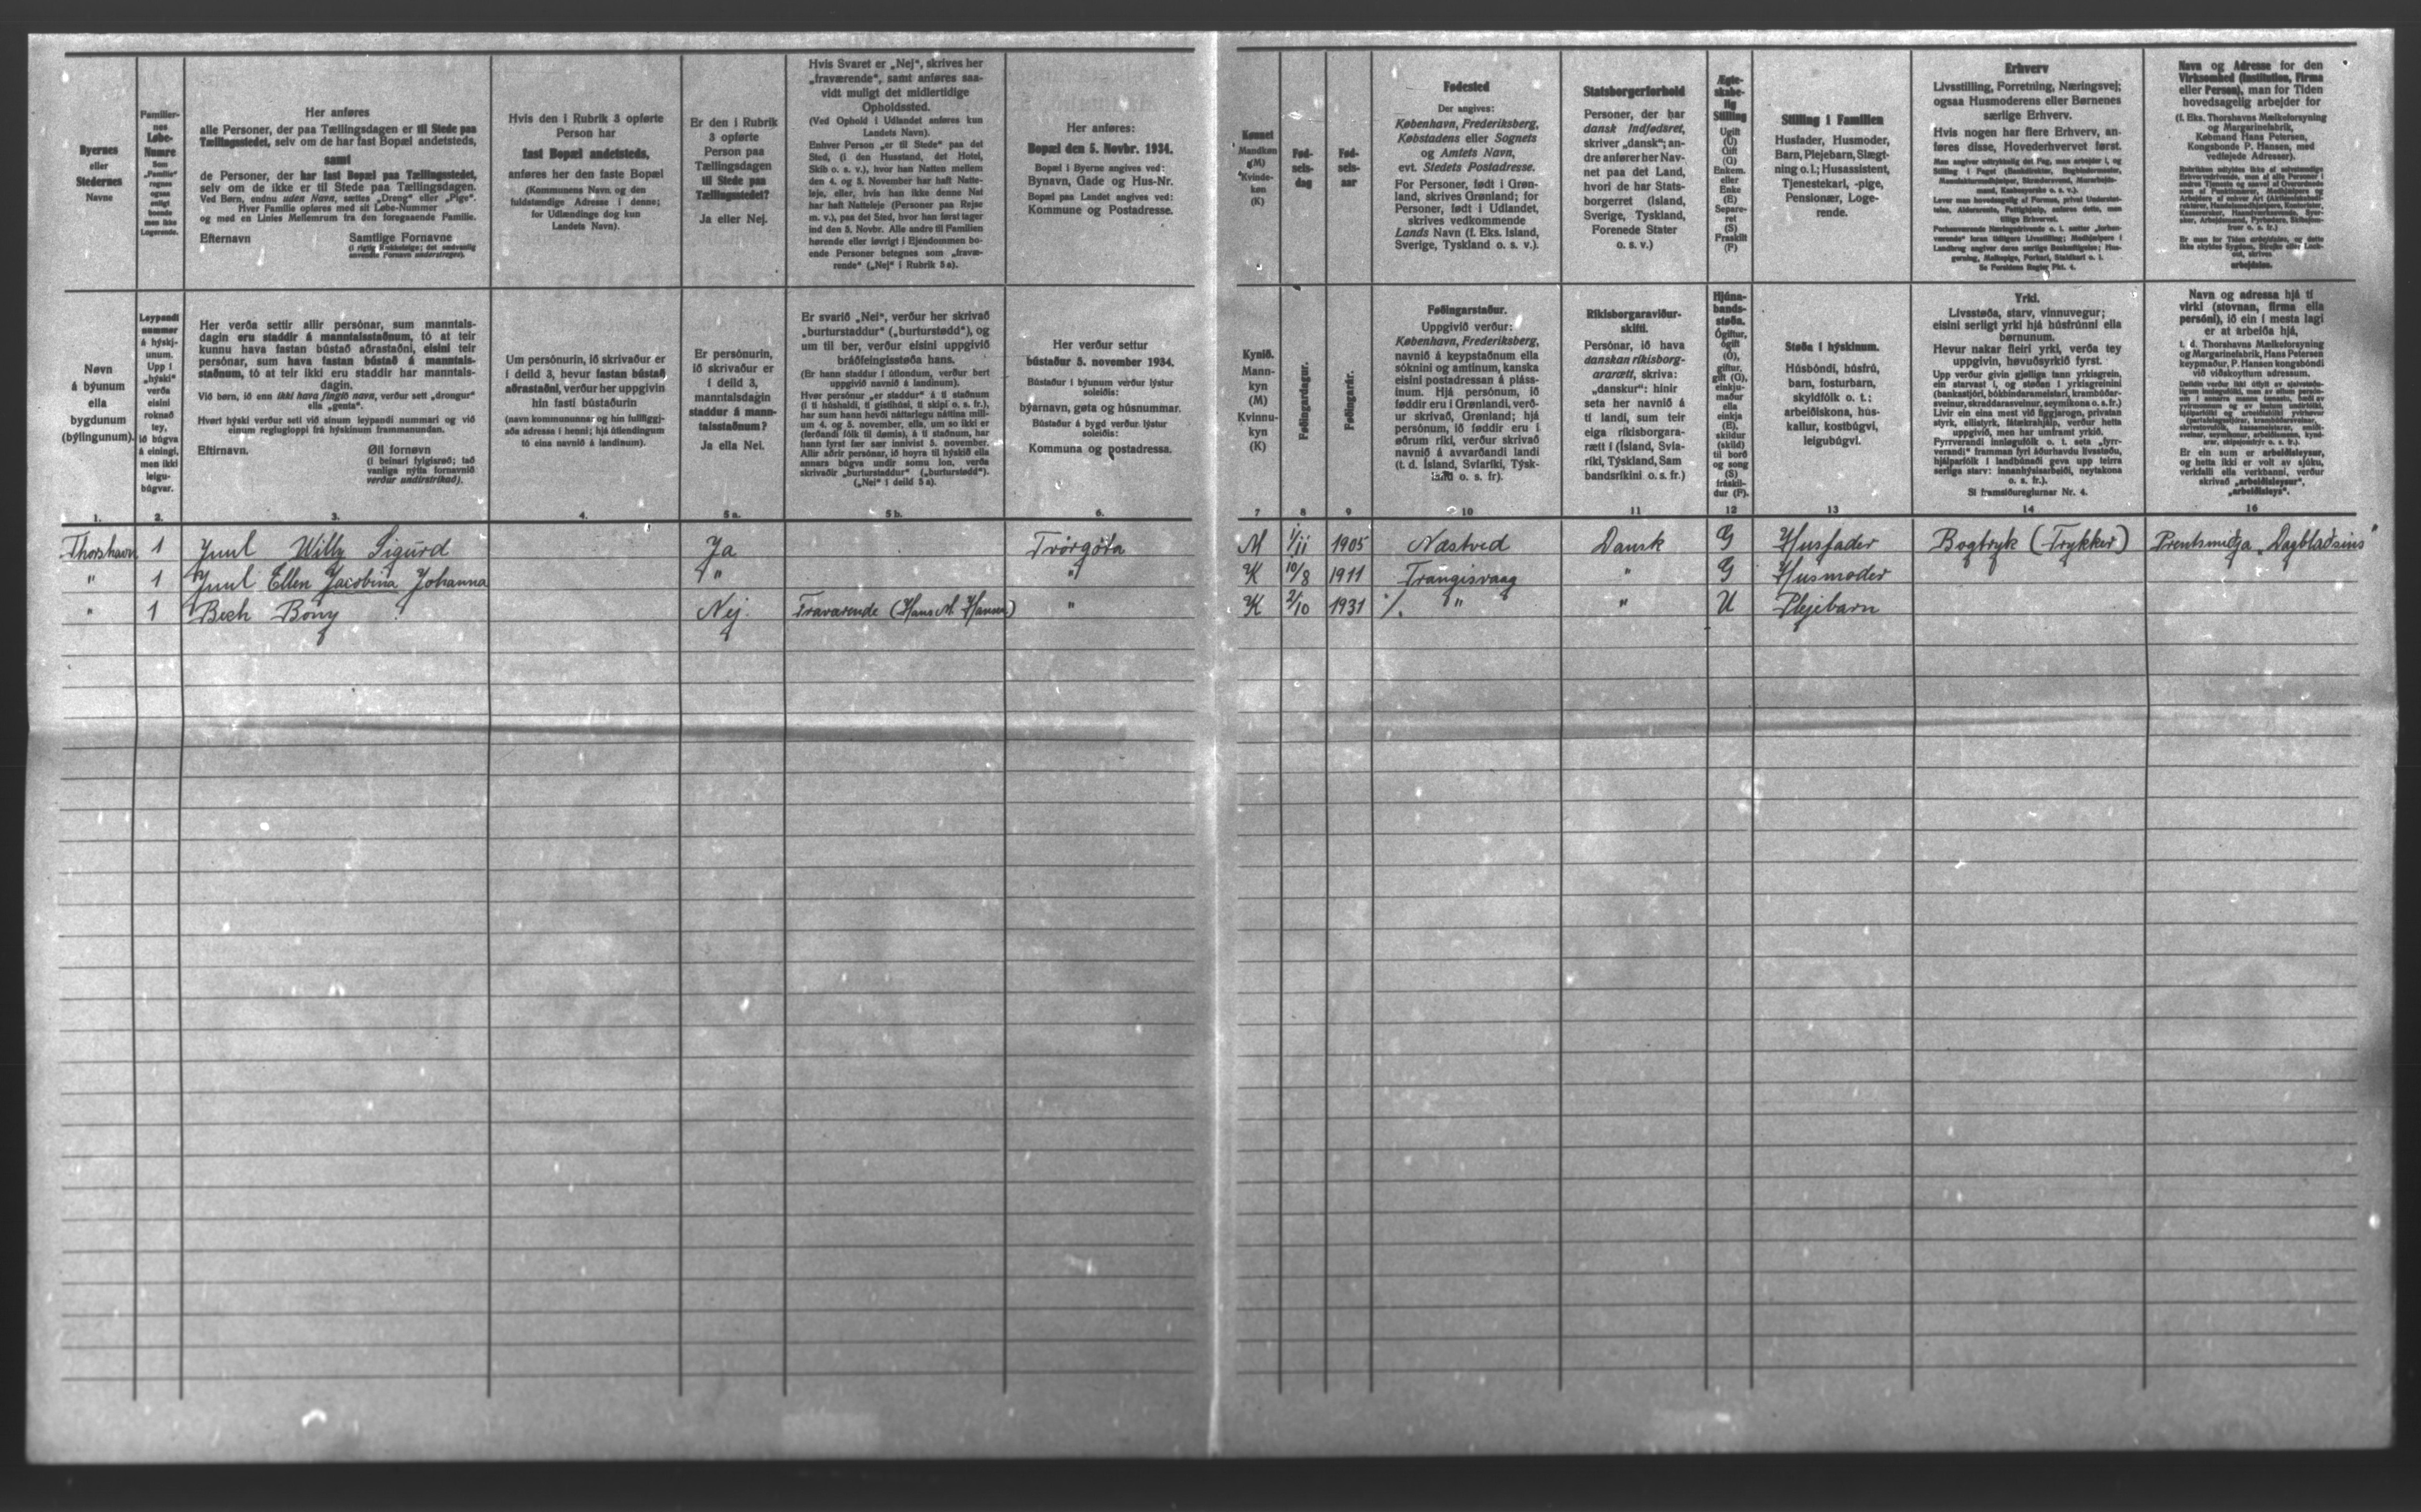 Byernes
eller
Stedernes
Navne
Familier-
nes
Løbe-
Numre
Som
„Familie“
regnes
ogsaa
enligt
boende
men ikke
Logerende.
Her anføres
alle Personer, der paa Tællingsdagen er til Stede paa
Tællingsstedet, selv om de har fast Bopæl andetsteds,
samt
de Personer, der har fast Bopæl paa Tællingsstedet,
selv om de ikke er til Stede paa Tællingsdagen.
Ved Børn, endnu uden Navn, sættes „Dreng“ eller „Pige“.
Hver Familie opføres med sit Løbe-Nummer
og med en Linies Mellemrum fra den foregaaende Familie.
Efternavn Samtlige Fornavne
(i rigtig Rækkefølge; det sædvanlig
anvendte Fornavn understreges).
Hvis den i Rubrik 3 opførte
Person har
fast Bopæl andetsteds,
anføres her den faste Bopæl
(Kommunens Navn og den
fuldstændige Adresse i denne;
for Udlændinge dog kun
Landets Navn).
Er den i Rubrik
3 opførte
Person paa
Tællingsdagen
til Stede paa
Tællingsstedet?
Ja eller Nej.
Hvis Svaret er „Nej“, skrives her
„fraværende“, samt anføres saa-
vidt muligt det midlertidige
Opholdssted.
(Ved Ophold i Udlandet anføres kun
Landets Navn).
Enhver Person „er til Stede“ paa det
Sted, (i den Husstand, det Hotel,
Skib o. s. v.), hvor han Natten mellem
den 4. og 5. November har haft Natte-
leje, eller, hvis han ikke denne Nat
har haft Natteleje (Personer paa Rejse
m. v.), paa det Sted, hvor han først tager
ind den 5. Novbr. Alle andre til Familien
hørende eller iøvrigt i Ejendommen bo-
ende Personer betegnes som „fravæ-
rende“ („Nej“ i Rubrik 5 a).
Her anføres:
Bopæl den 5. Novbr. 1934.
Bopæl i Byerne angives ved:
Bynavn, Gade og Hus-Nr.
Bopæl paa Landet angives ved:
Kommune og Postadresse.
Kønnet
Mandkøn
(M)
Kvinde-
køn
(K)
Fød-
sels-
dag
Fød-
sels-
aar
Fødested
Der angives:
København, Frederiksberg,
Købstadens eller Sognets
og Amtets Navn,
evt. Stedets Postadresse.
For Personer, født i Grøn-
land, skrives Grønland; for
Personer, født i Udlandet,
skrives vedkommende
Lands Navn (f. Eks. Island,
Sverige, Tyskland o. s. v.).
Statsborgerforhold
Personer, der har
dansk Indfødsret,
skriver „dansk“; an-
dre anfører her Nav-
net paa det Land,
hvori de har Stats-
borgerret (Island,
Sverige, Tyskland,
Forenede Stater
o. s. v.)
Ægte-
skabe-
lig
Stilling
Ugift
(U)
Gift
(G)
Enkem.
eller
Enke
(E)
Separe-
ret
(S)
Fraskilt
(F)
Stilling i Familien
Husfader, Husmoder,
Barn, Plejebarn, Slægt-
ning o. l.; Husassistent,
Tjenestekarl, -pige,
Pensionær, Loge-
rende.
Erhverv
Livsstilling, Forretning, Næringsvej;
ogsaa Husmoderens eller Børnenes
særlige Erhverv.
Hvis nogen har flere Erhverv, an-
føres disse, Hovederhvervet først.
Se Forsidens Regler Pkt. 4.
Navn og Adresse for den
Virksomhed (Institution, Firma
eller Person), man for Tiden
hovedsagelig arbejder for
(f. Eks. Thorshavns Mælkeforsyning
og Margarinefabrik,
Købmand Hans Petersen,
Kongsbonde P. Hansen, med
vedføjede Adresser).
arbejdsløs.
Nøvn
á býunum
ella
bygdunum
(býlingunum).
Leypandi
nummer
á hýskj-
unum.
Upp í
„hýski“
verða
eisini
roknað
tey,
ið búgva
á einingi,
men ikki
leigu-
búgvar.
Her verða settir allir persónar, sum manntals-
dagin eru staddir á manntalsstaðnum, tó at teir
kunnu hava fastan bústað aðrastaðni, eisini teir
persónar, sum hava fastan bústað á manntals-
staðnum, tó at teir ikki eru staddir har manntals-
dagin.
Við børn, ið enn ikki hava fingið navn, verður sett „drongur“
ella „genta“.
Hvørt hýski verður sett við sínum leypandi nummari og við
einum reglugloppi frá hýskinum frammanundan.
Eftirnavn. Øll fornøvn
(í beinari fylgisrøð; tað
vanliga nýtla fornavnið
verður undirstrikað).
Um persónurin, ið skrivaður er
í deild 3, hevur fastan bústað
aðrastaðni, verður her uppgivin
hin fasti bústaðurin
(navn kommununnar og hin fullfíggj-
aða adressa í henni; hjá útlendingum
tó eina navnið á landinum).
Er persónurin,
ið skrivaður er
í deild 3,
manntalsdagin
staddur á mann-
talsstaðnum?
Ja ella Nei.
Er svarið „Nei“, verður her skrivað
„burturstaddur“ („burturstødd“), og
um til ber, verður eisini uppgivið
bráðfeingisstøða hans.
(Er hann staddur í útlondum, verður bert
uppgivið navnið á landinum).
Her verður settur
bústaður 5. november 1934.
Bústaður í býunum verður lýstur
soleiðis:
býarnavn, gøta og húsnummar.
Bústaður á bygd verður lýstur
soleiðis:
Kommuna og postadressa.
Kynið.
Mann-
kyn
(M)
Kvinnu-
kyn
(K)
Føðingardagur.
Føðingarár.
Føðingarstaður.
Uppgivið verður:
København, Frederiksberg,
navnið á keypstaðnum ella
sóknini og amtinum, kanska
eisini postadressan á pláss-
inum. Hjá persónum, ið
føddir eru í Grønlandi, verð-
ur skrivað, Grønland; hjá
persónum, ið føddir eru í
øðrum ríki, verður skrivað
navnið á avvarðandi landi
(t. d. Ísland, Svíaríki, Týsk-
land o. s. fr).
Ríkisborgaraviður-
skifti.
Persónar, ið hava
danskan ríkisborg-
ararætt, skriva:
„danskur“: hinir
seta her navnið á
tí landi, sum teir
eiga ríkisborgara-
rætt í (Ísland, Svía-
ríki, Týskland, Sam
bandsríkini o. s. fr.)
Hjúna-
bands-
støða.
Ógiftur,
ógift
(Ó),
giftur,
gift (G),
einkju-
maður
ella
einkja
(E),
skildur
(skild)
til borð
og song
(S)
fráskil-
dur (F).
Støða í hýskinum.
Húsbóndi, húsfrú,
barn, fosturbarn,
skyldfólk o. t.;
arbeiðiskona, hús-
kallur, kostbúgvi,
leigubúgvi.
Yrki.
Lívsstøða, starv, vinnuvegur;
eisini serligt yrki hjá húsfrúnni ella
børnunum.
Hevur nakar fleiri yrki, verða tey
uppgivin, høvuðsyrkið fyrst.
Sí framsíðureglurnar Nr. 4.
Navn og adressa hjá tí
virki (stovnan, firma ella
persóni), ið ein í mesta lagi
er at arbeiða hjá,
t. d. Thorshavns Mælkeforsyning
og Margarinefabrik, Hans Petersen
keypmaður, P. Hansen kongsbóndi
við viðskoyttum adressum.
Er ein sum er arbeiðsleysur,
og hetta ikki er volt av sjúku,
verkfalli ella verkbanni, verður
skrivað „arbeiðsleysur“,
„arbeiðsleys“.
1. 2. 3. 4. 5 a. 5 b. 6. 7 8 9 10 11 12 13 14 16
Thorshavn 1 Juul Willy Sigurd Ja Tvørgøta M 1/11 1905 Næstved Dansk G Husfader Bogtryk (Trykker) Prentsmiðja „Dagblaðsins“
" 1 Juul Ellen Jacobina Johanna " " K 10/8 1911 Trangisvaag " G Husmoder
" 1 Bech Bony Nej. Fraværende (Hans M. Hansen) " K 2/10 1931 /. " " U Plejebarn